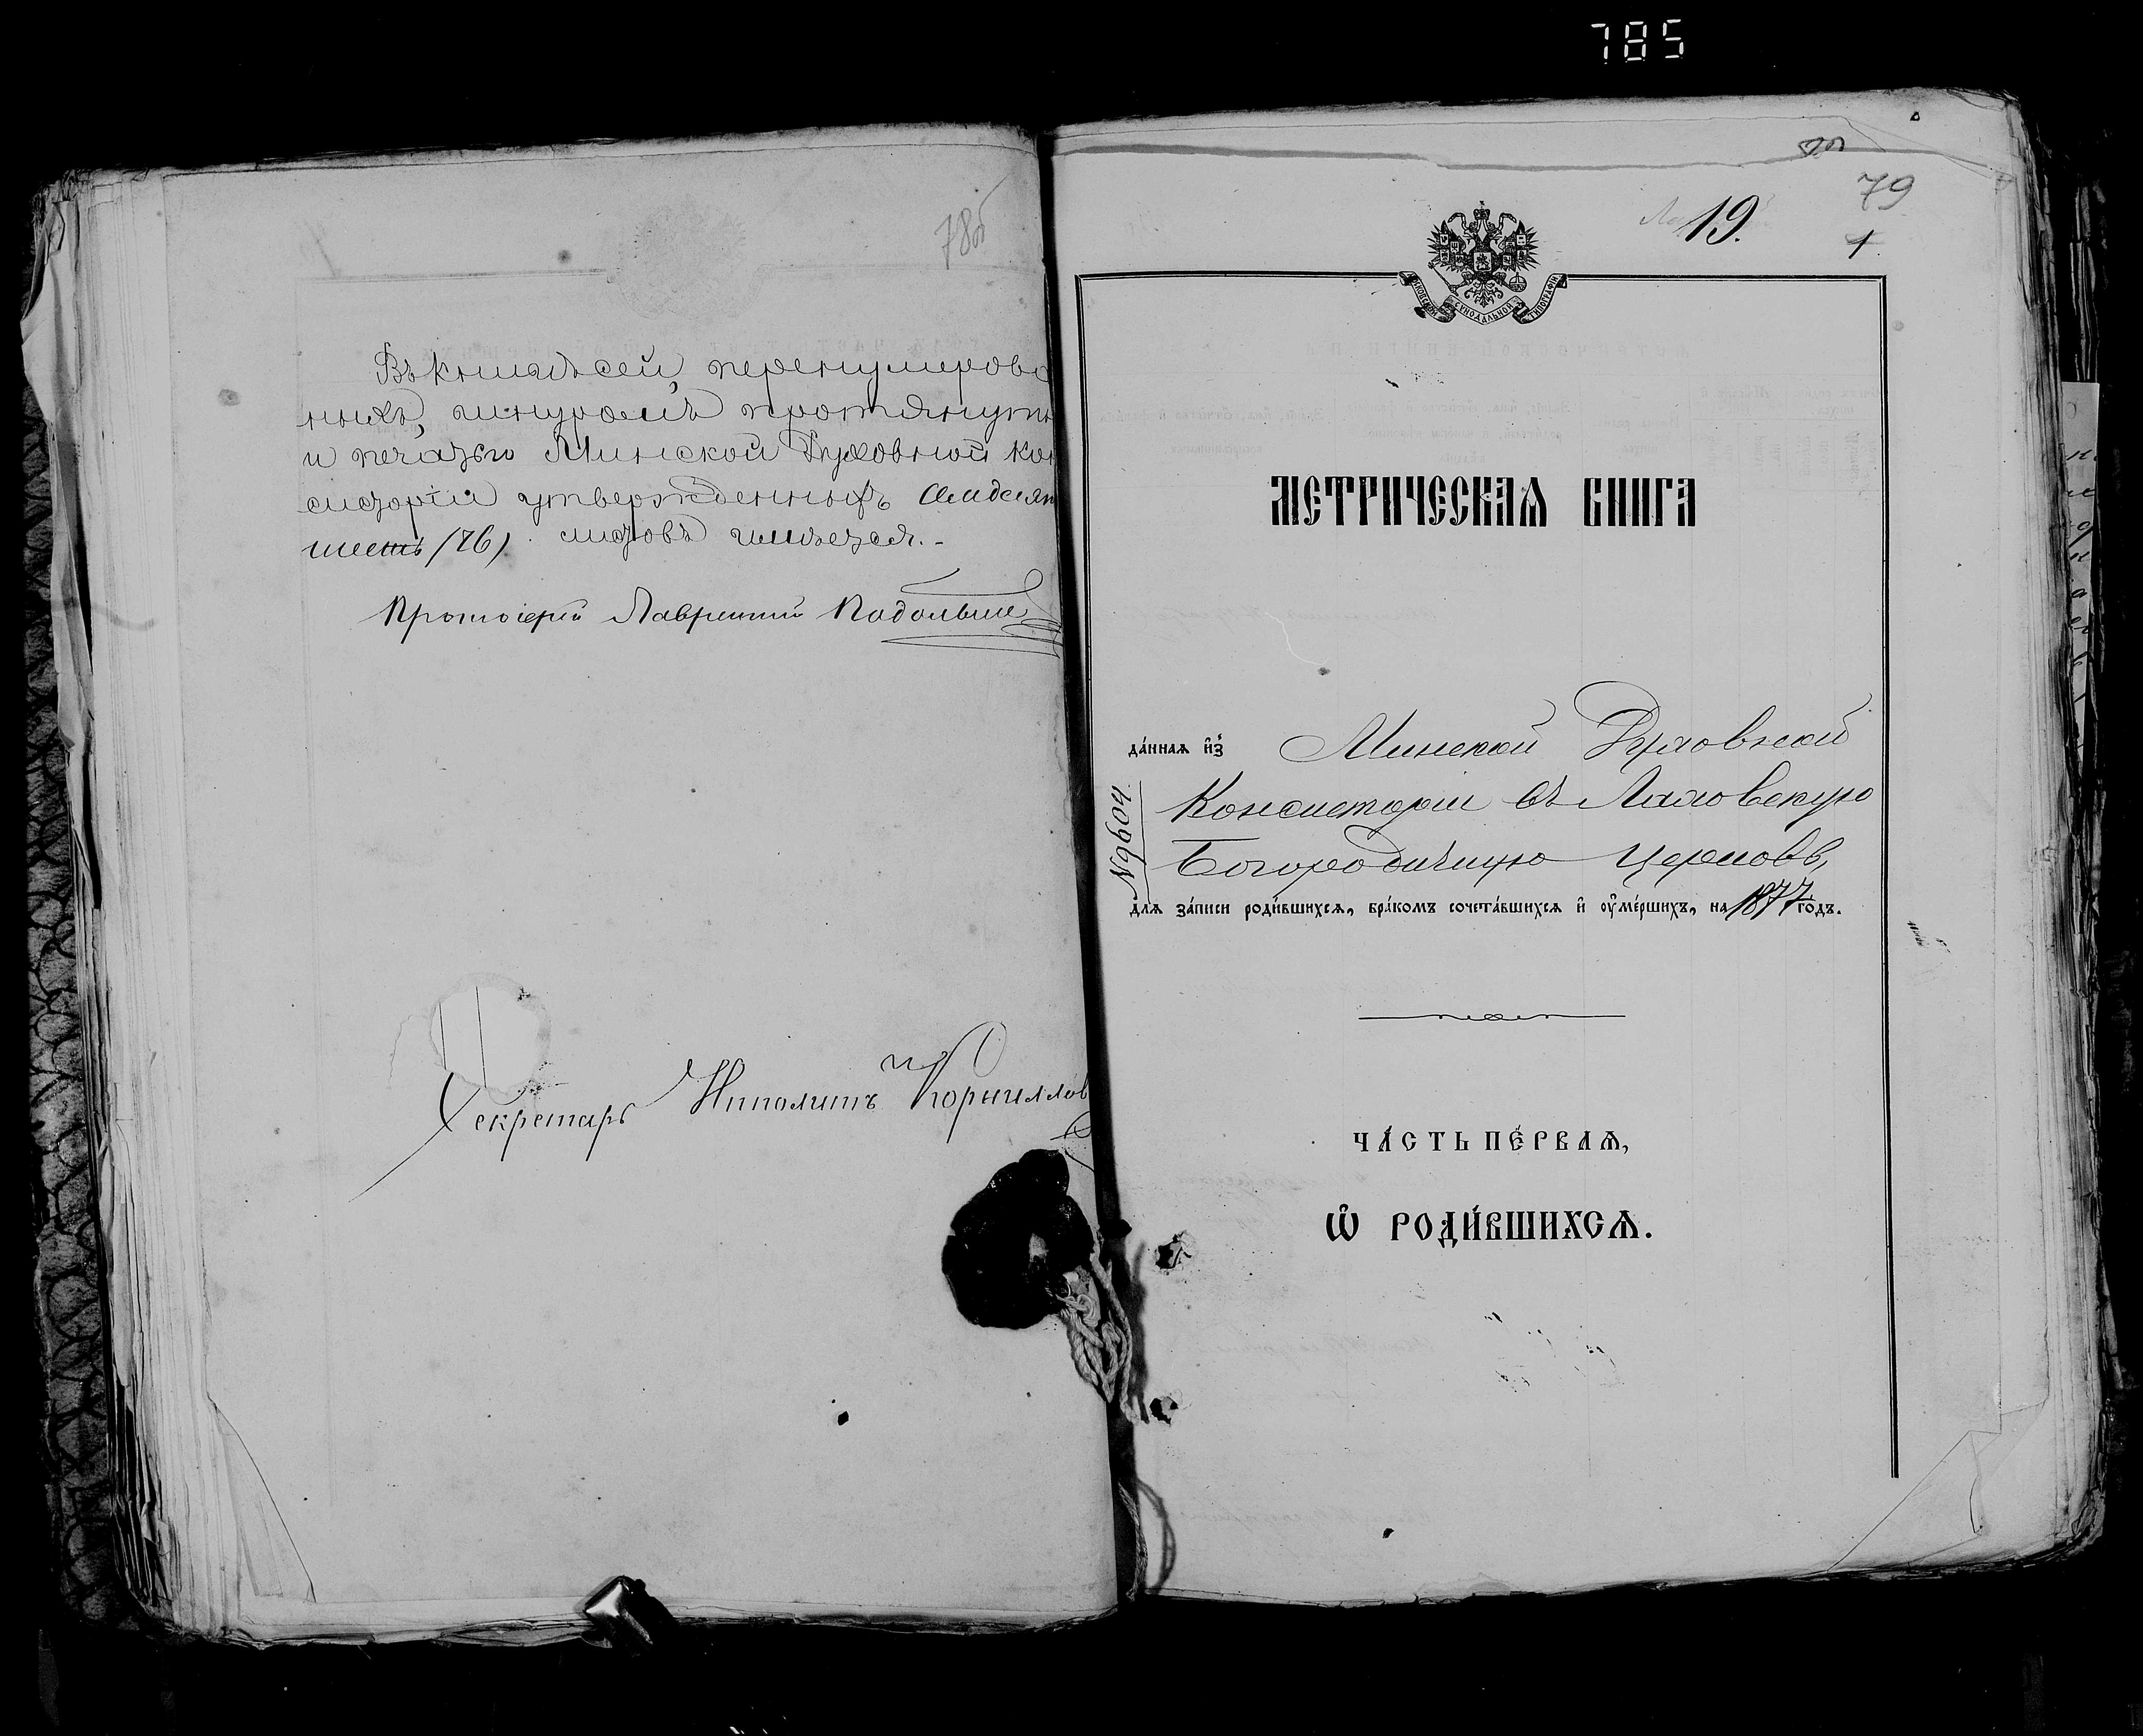 785
78об
Въ книгѣ сей, перенумерова
ныхъ, шнуромъ протянуты
и печатью Минской Духовной Кон
систоріи утвержденныхъ семдесят
шесть (76) листовъ имѣется.-
Протоіерей Лаврентій Подольскі
Секретарь Ипполитъ Корниллов
79
19.
1.
МОСКОВСКОЙ СѴНОДАЛЬНОЙ ТИПОГРАФІИ
МЕТРИЧЕСКАѦ КНИГА
да́ннаѧ и҆з̾ Минской Духовной
Консисторіи въ Ляховскую
Богородичную церковь,
№9604.
длѧ за́писи роди́вшихсѧ, бра́комъ сочета́вшихсѧ и҆ ᲂу҆ме́ршихъ, на 1877 годъ.
ЧА́СТЬ ПЕ́РВАѦ,
Ѡ҆ РОДИ́ВШИХСѦ.